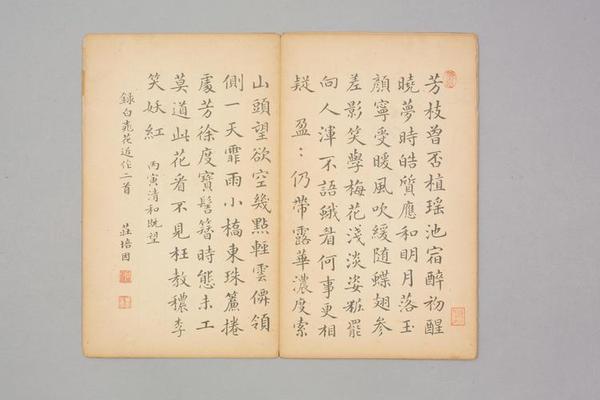 芳枝曾否植瑶池宿醉初醒
曉夢時皓質應和明月落玉
顏寧受暖風吹緩随蝶翅參
差影笑學梅花淺淡姿粧罷
向人渾不語蛾眉何事更相
疑 盈:仍帶露華濃度索
山頭望欲空幾點輕雲僻領
側一天霏雨小橋東珠簾捲
處芳徐度寶髻簪時態未工
莫道此花看不見枉教穠李
笑妖紅 丙寅清和既望
錄白桃花近作二首 莊培因